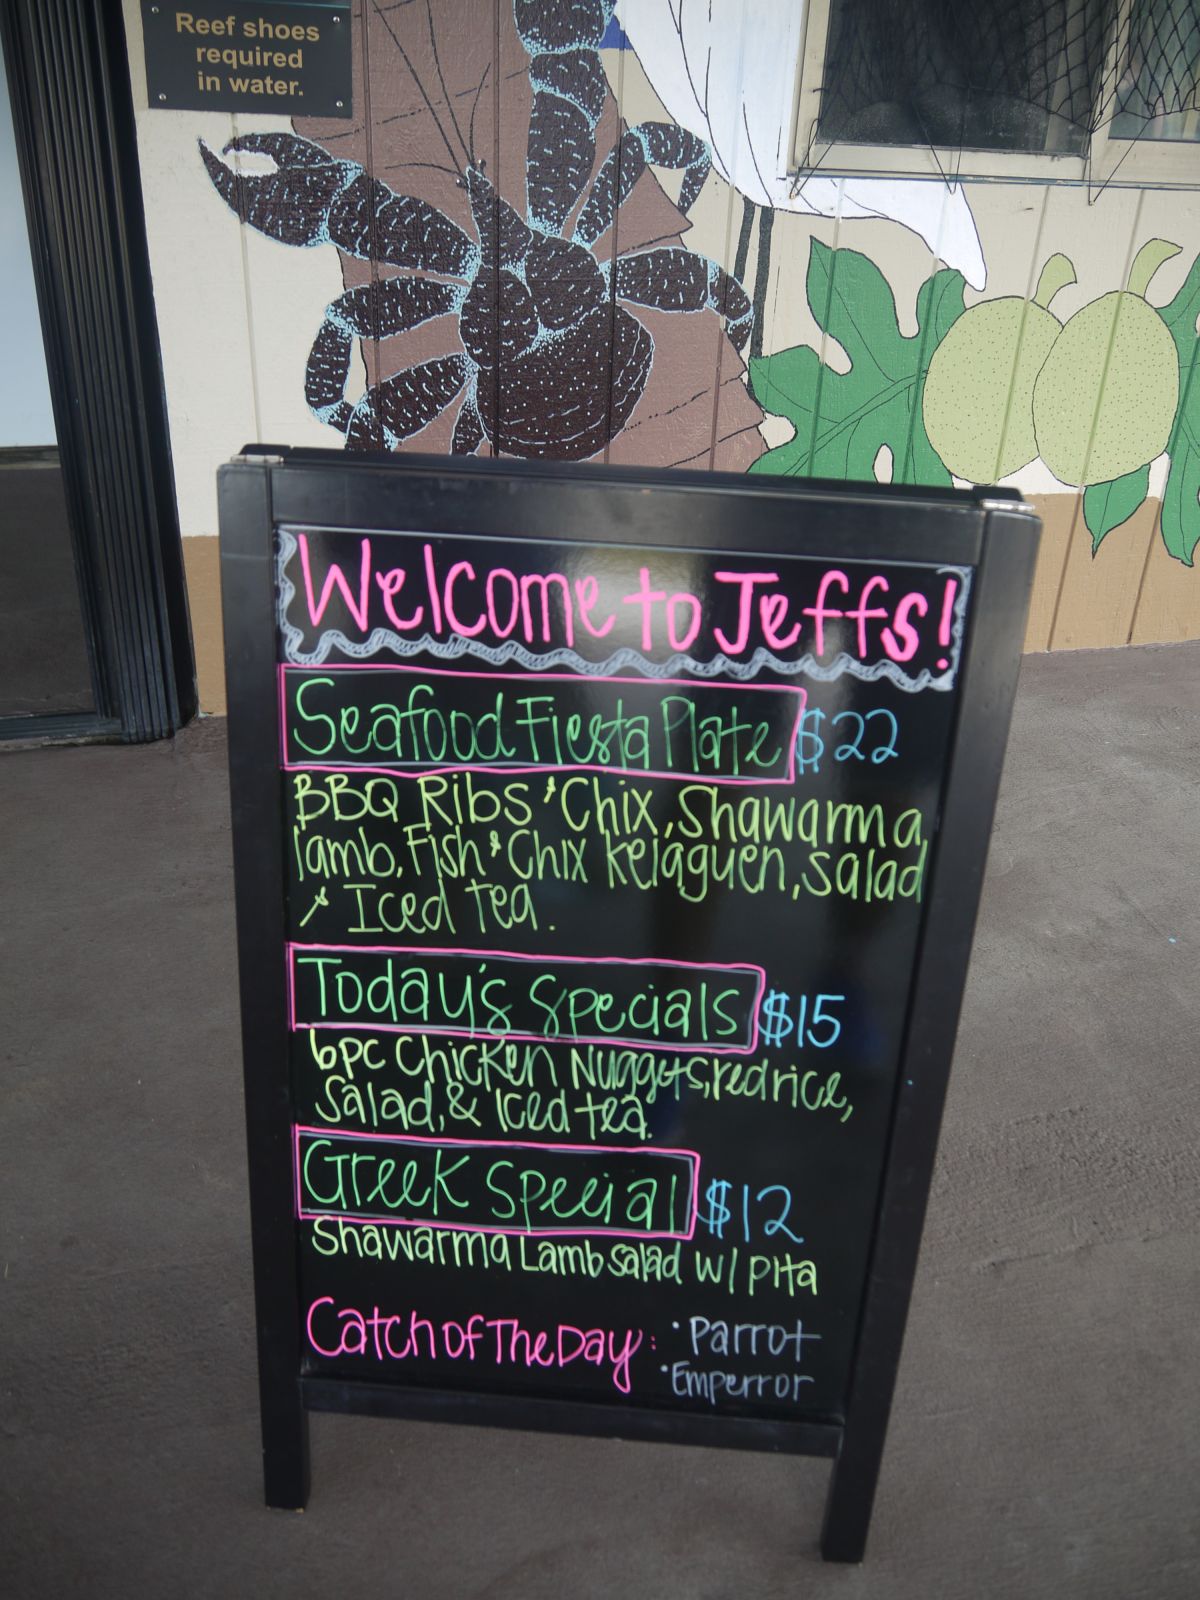 Reef shoes
required
in water.
Welcome to Jeffs!
Seafood Fiesta Plate $22
BBQ Ribs & Chix, Shawarma
lamb, Fish & Chix kelaguen, salad
& Iced tea.
Today's Specials $15
6pc Chicken Nuggets, red rice,
Salad, & Iced tea.
Greek Special $12
Shawarma Lamb salad w/ pita
Catch Of The Day: • Parrot
• Emperror